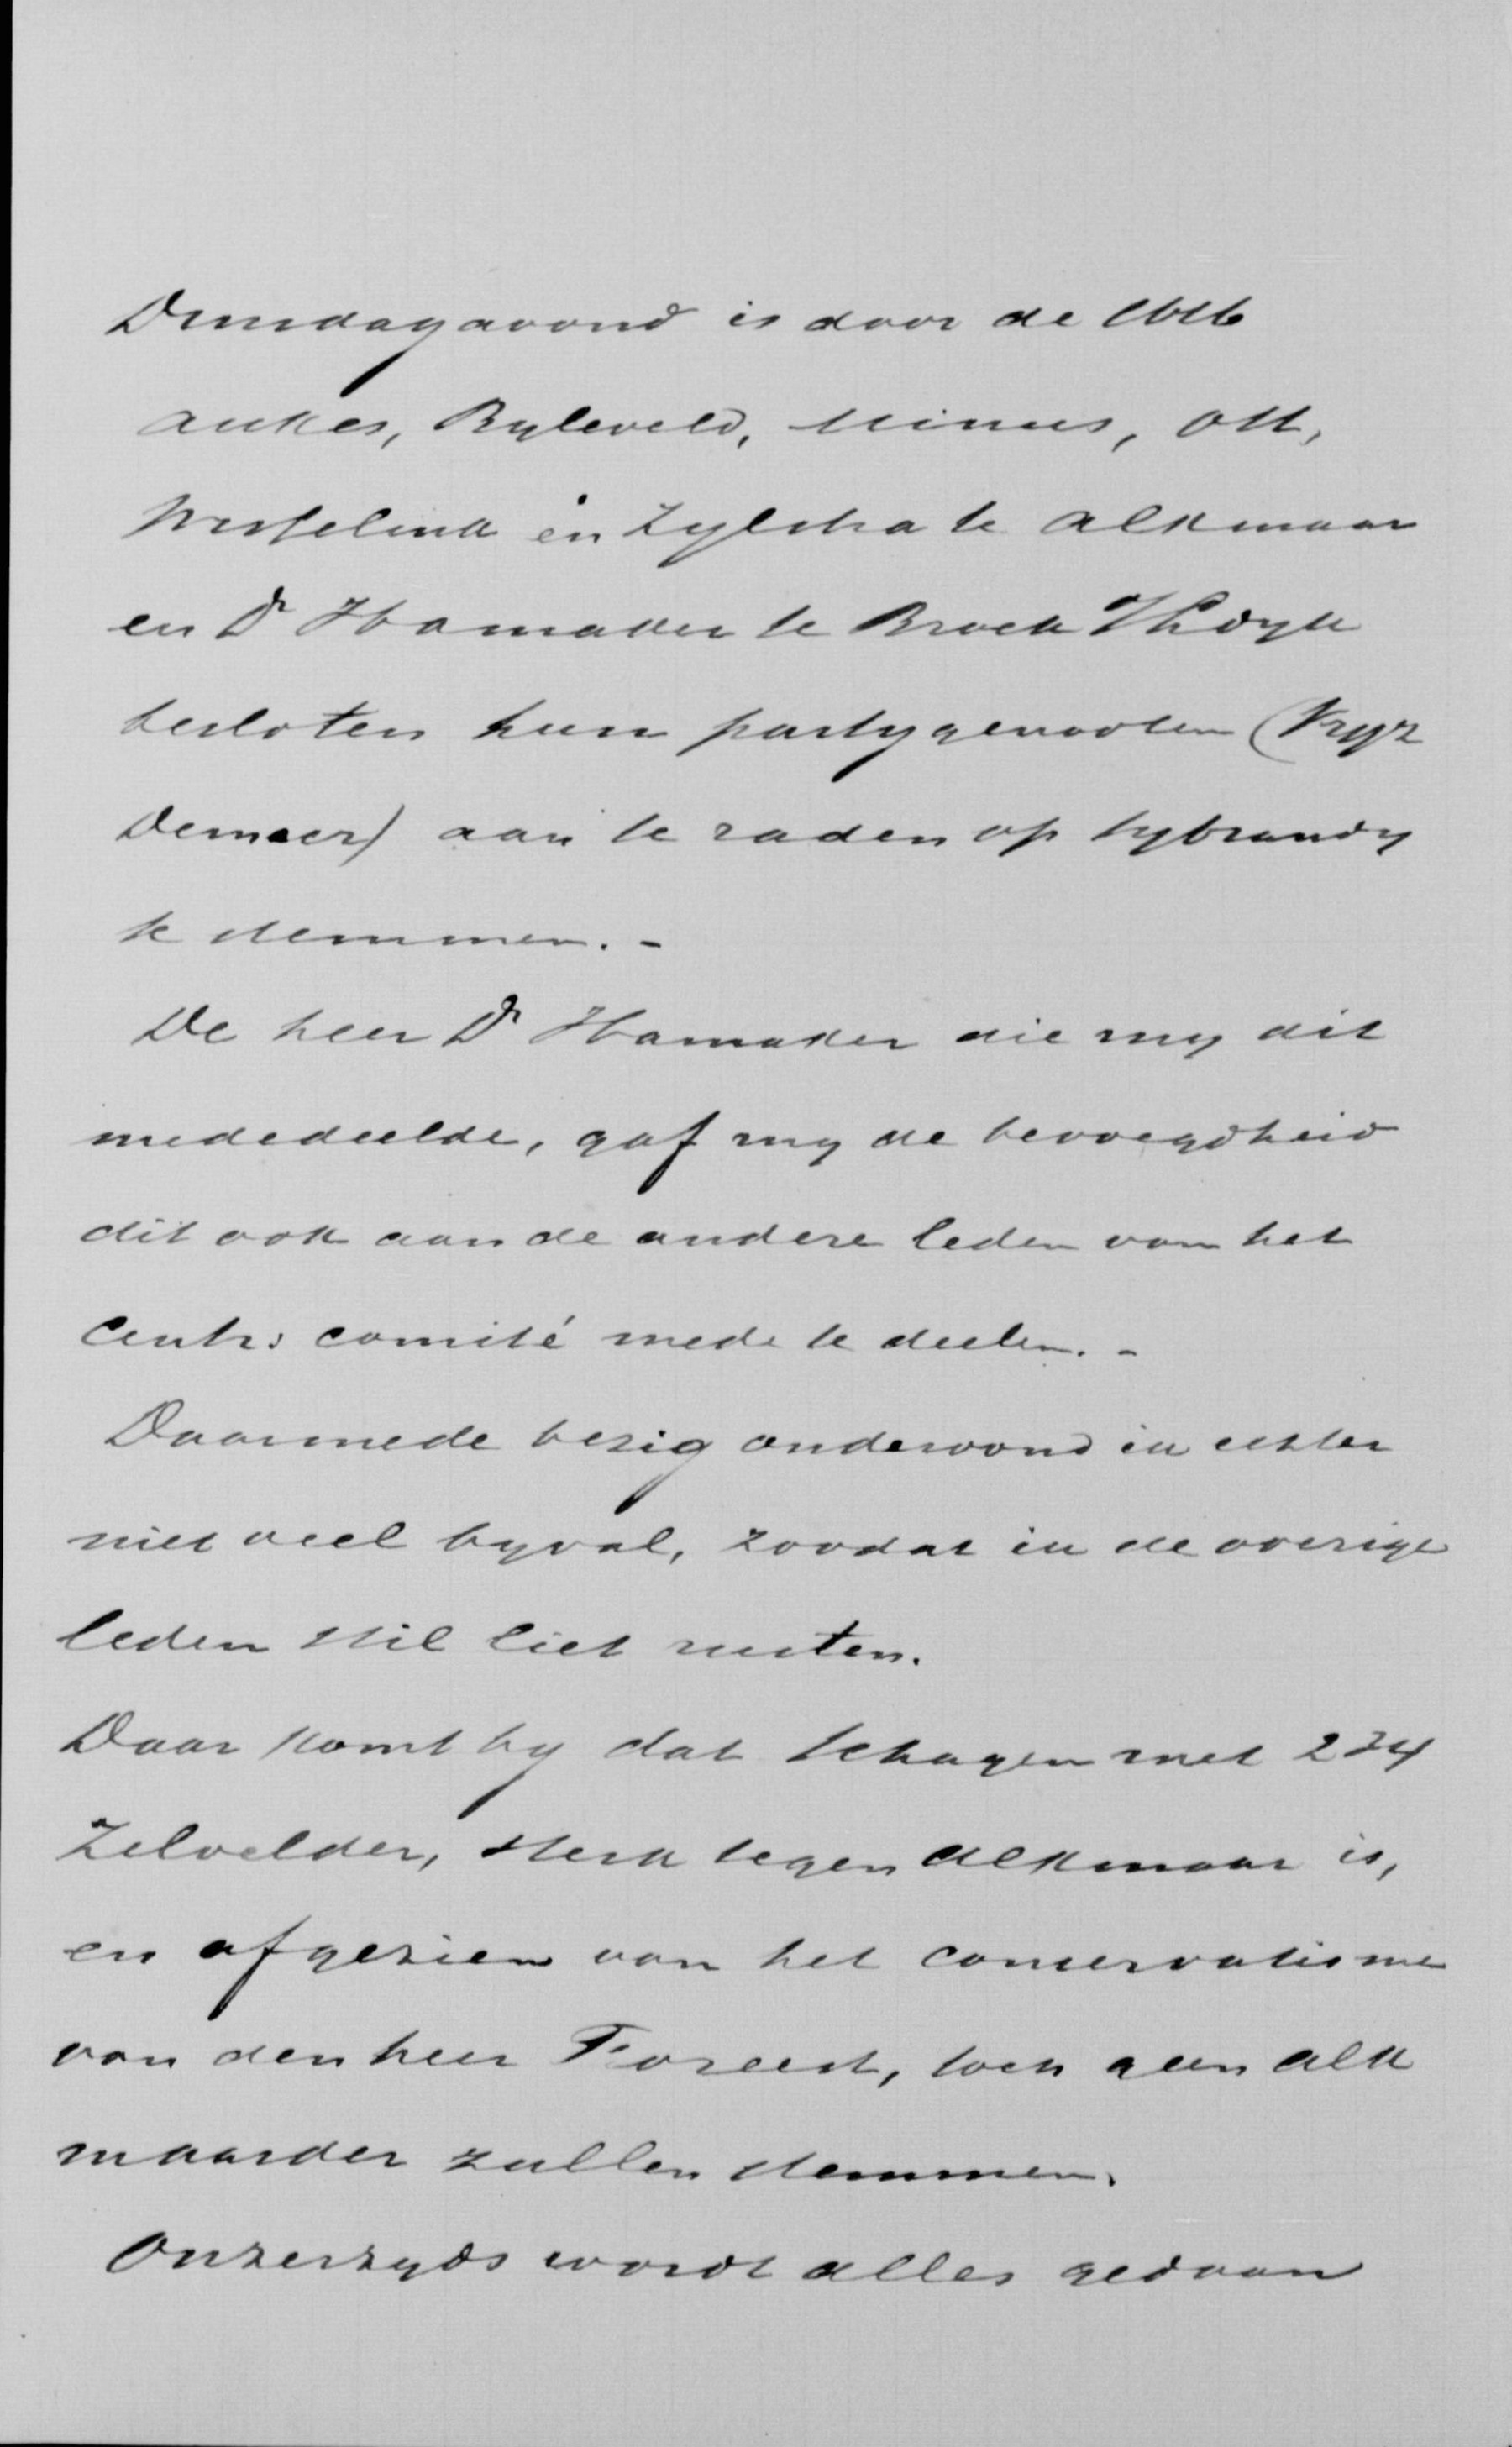 Dinsdagavond is door de HH
Aukes, Byleveld, Minus, Ott,
Wesselink en Zylstra te Alkmaar
en Dr Hamaker te Broek dyk
besloten hun partygenooten (Vryz
Democr) aan te raden op Sybrandy
te stemmen. -
De heer Dr Hamaker die my dit
mededeelde, gaf my de bevoegdheid
dit ook aan de andere leden van het
Centr: comité mede te deelen. -
Daarmede bezig ondervond ik echter
niet veel byval, zoodat ik de overige
leden stil liet rusten.
Daar komt by dat Schagen met 234
Zelvelder, sterk tegen Alkmaar is,
en afgezien van het conservatisme
van den heer Foreest, toch geen Alk
maarder zullen stemmen.
Onzerzyds wordt alles gedaan